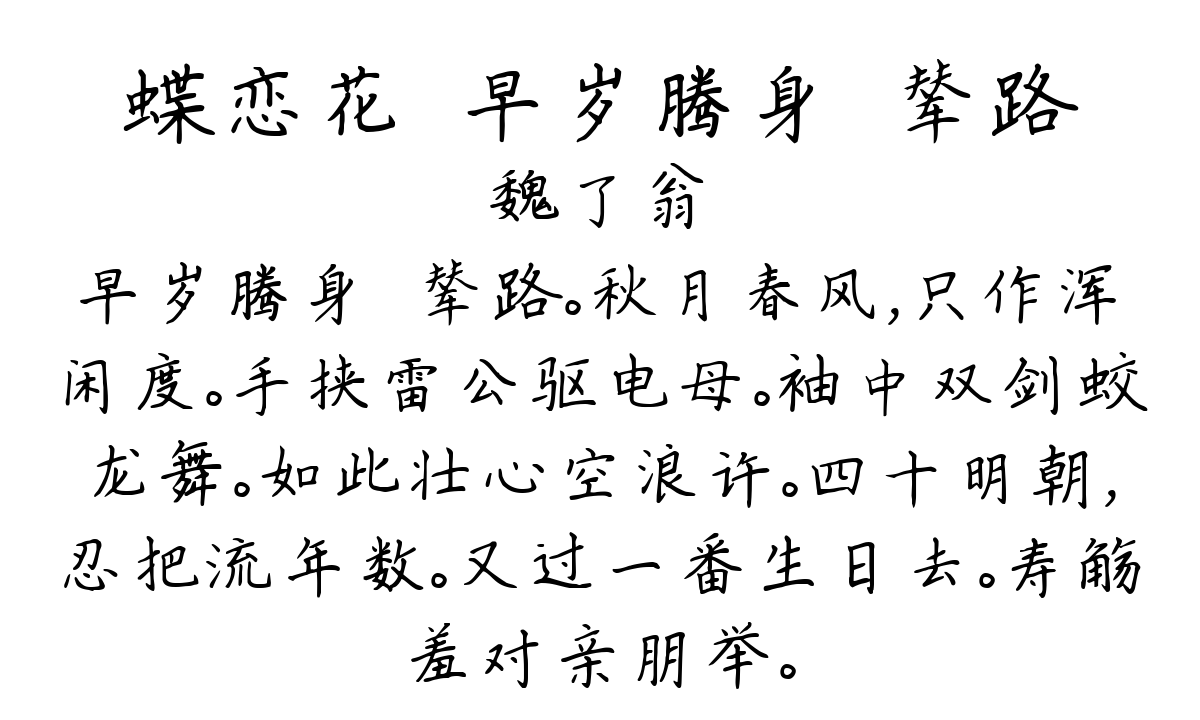 蝶恋花 早岁腾身 辇路
魏了翁
早岁腾身 辇路。秋月春风,只作浑
闲度。手挟雷公驱电母。袖中双剑蛟
龙舞。如此壮心空浪许。四十明朝,
忍把流年数。又过一番生日去。寿觞
羞对亲朋举。